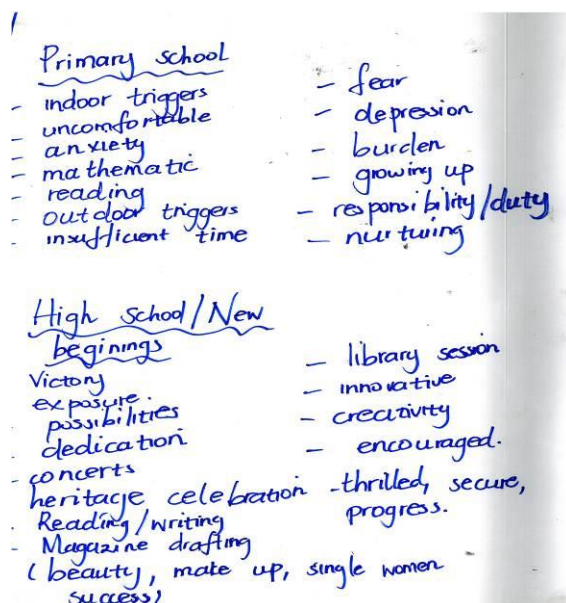 Primary school
- indoor triggers
- uncomfortable
- anxiety
- mathematic
- reading
- outdoor triggers
- insufficient time
- fear
- depression
- burden
- growing up
- responsibility/duty
- nurturing
High school/New
beginings
Victory
exposure.
possibilities
- dedication
- concerts
heritage celebration
- Reading/writing
- Magazine drafting
(beauty, make up, single women
success)
- library session
- innovative
- creativity
- encouraged.
- thrilled, secure,
progress.